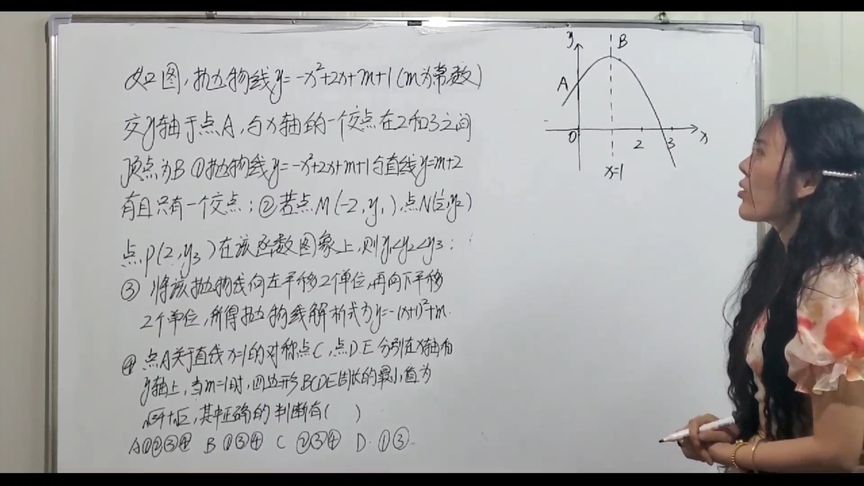 如图,抛物线y=-x²+2x+m+1(m为常数)
交y轴于点A,与x轴的一个交点在2和3之间
顶点为B ①抛物线y=-x²+2x+m+1与直线y=m+2
有且只有一个交点;②若点M(-2,y₁),点N(½,y₂)
点P(2,y₃)在该函数图象上,则y₁<y₂<y₃;
③ 将该抛物线向左平移2个单位,再向下平移
2个单位,所得抛物线解析式为y=-(x+1)²+m.
④ 点A关于直线x=1的对称点C,点D.E分别在x轴和
y轴上,当m=1时,四边形BCDE周长的最小值为
√34+√2,其中正确的判断有( )
A①②③④ B ①③④ C ②③④ D.①③.
y
B
A
0
2
3
x
x=1